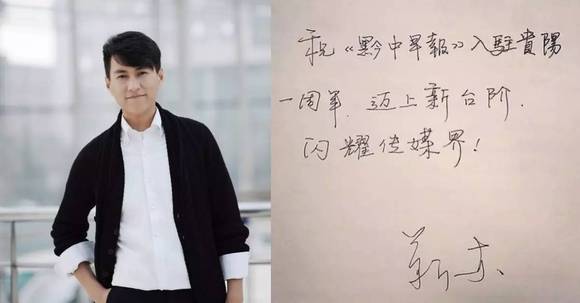 祝《黔中早報》入駐貴陽
一周年,迈上新台阶,
闪耀传媒界!
靳东